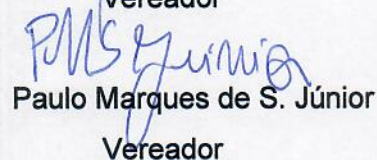 Vereador
Paulo Marques de S. Júnior
Vereador